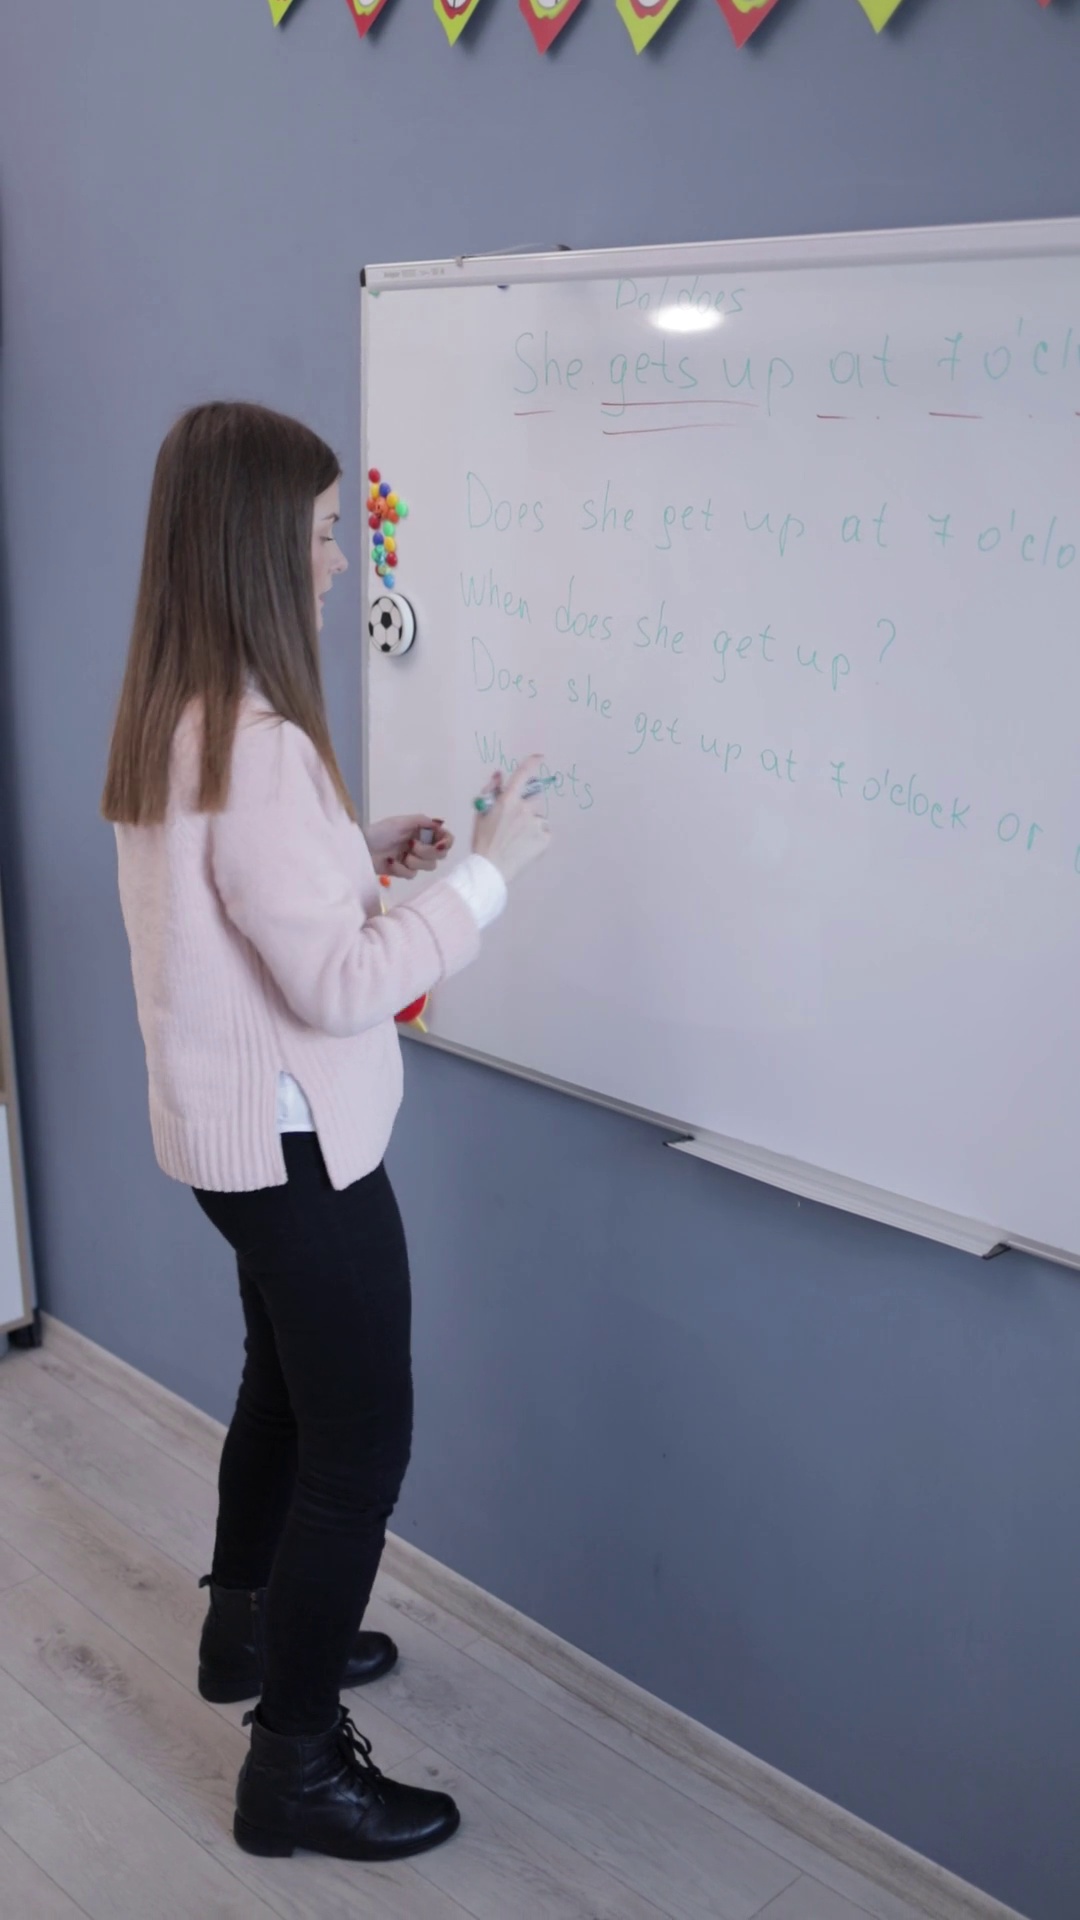 Do/does
She gets up at 7 o'cl
Does she get up at 7 o'clo
When does she get up?
Does she get up at 7 o'clock or
Who gets